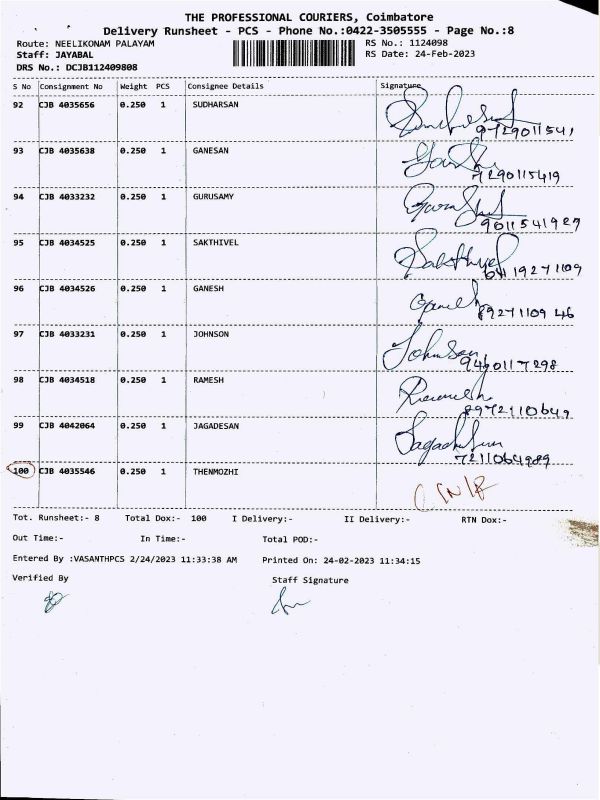 THE PROFESSIONAL COURIERS, Coimbatore
Delivery Runsheet - PCS - Phone No.:0422-3505555 - Page No.:8
Route: NEELIKONAM PALAYAM RS No.: 1124098
Staff: JAYABAL RS Date: 24-Feb-2023
DRS No.: DCJB112409808
S No Consignment No Weight PCS Consignee Details Signature
92 CJB 4035656 0.250 1 SUDHARSAN
9729011541
93 CJB 4035638 0.250 1 GANESAN
7290115419
94 CJB 4033232 0.250 1 GURUSAMY
9011541929
95 CJB 4034525 0.250 1 SAKTHIVEL Sakthivel
96 CJB 4034526 0.250 1 GANESH Ganesh
8927110946
97 CJB 4033231 0.250 1 JOHNSON Johnson
9460117298
98 CJB 4034518 0.250 1 RAMESH Ramesh
8972110649
99 CJB 4042064 0.250 1 JAGADESAN
7211064989
100 CJB 4035546 0.250 1 THENMOZHI
Tot. Runsheet:- 8 Total Dox:- 100 I Delivery:- II Delivery:- RTN Dox:-
Out Time:- In Time:- Total POD:-
Entered By :VASANTHPCS 2/24/2023 11:33:38 AM Printed On: 24-02-2023 11:34:15
Verified By Staff Signature